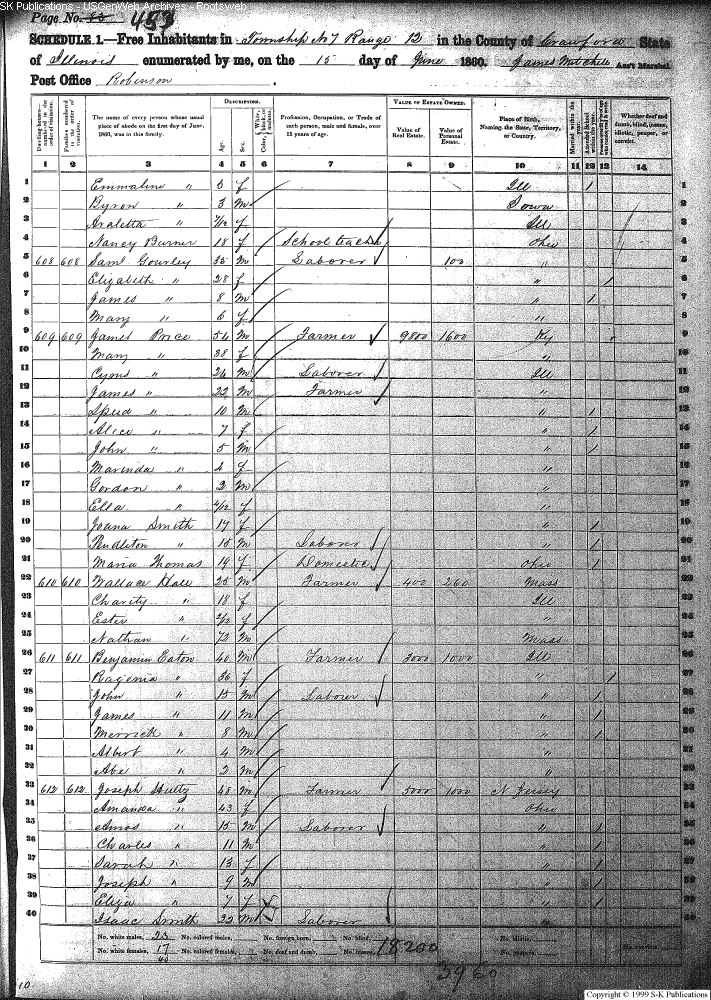 SK Publications - USGenWeb Archives - Rootsweb
Page No. 453
SCHEDULE 1.—Free Inhabitants in Township No 7 Range 12 in the County of Crawford State
of Illinois enumerated by me, on the 15 day of June 1860. James Mitchell Ass't Marshal.
Post Office Robinson
Dwelling-houses—numbered in the order of visitation. Families numbered in the order of visitation. The name of every person whose usual place of abode on the first day of June, 1860, was in this family. DESCRIPTION. Age. Sex. Color, White, black, or mulatto. Profession, Occupation, or Trade of each person, male and female, over 15 years of age. VALUE OF ESTATE OWNED. Value of Real Estate. Value of Personal Estate. Place of Birth, Naming the State, Territory, or Country. Married within the year. Attended School within the year. Whether deaf and dumb, blind, insane, idiotic, pauper, or convict.
1 2 3 4 5 6 7 8 9 10 11 12 13 14
1 Emmaline " f Ill / 1
2 Byron " 3 m Iowa 2
3 Araletta " 7/12 f Ill 3
4 Nancy Burner 18 f School teacher Ohio 4
5 608 608 Saml Gourley 35 m Laborer 100 " 5
6 Elizabeth " 28 f " / 6
7 James " 8 m " / 7
8 Mary " 6 f " 8
9 609 609 James Price 54 m Farmer 9800 1600 Ky 9
10 Mary " 38 f " 10
11 Cyrus " 24 m Laborer Ill 11
12 James " 22 m Farmer " 12
13 Speed " 10 m " / 13
14 Alice " 7 f " / 14
15 John " 5 m " / 15
16 Marinda " 4 f " 16
17 Gordon " 2 m " 17
18 Ella " 4/12 f " 18
19 Joana Smith 17 f " / 19
20 Pendleton " 15 m Laborer " / 20
21 Maria Thomas 19 f Domestic Ohio / 21
22 610 610 Wallace Hale 25 m Farmer 400 260 Mass 22
23 Charity " 18 f Ill 23
24 Ester " 2/12 f " 24
25 Nathan " 72 m Mass 25
26 611 611 Benjamin Eaton 40 m Farmer 3000 1000 Ill 26
27 " 36 f " / 27
28 John " 15 m Laborer " / 28
29 James " 11 m " / 29
30 Merrick " 8 m " / 30
31 Albert " 4 m " 31
32 Abe " 2 m " 32
33 612 612 Joseph Hultz 48 m Farmer 5000 1000 N Jersey 33
34 Amanda " 43 f Ohio 34
35 Amos " 15 m Laborer " / 35
36 Charles " 11 m " / 36
37 Sarah " 13 f " / 37
38 Joseph " 9 m " / 38
39 Eliza " 7 f " / 39
40 Isaac Smith 22 m Laborer 40
No. white males, 23 No. colored males, No. foreign born, No. blind, No. idiotic,
No. white females, 17 No. colored females, No. deaf and dumb, No. insane, 18200 No. paupers,
40
3960
10
Copyright © 1999 S-K Publications